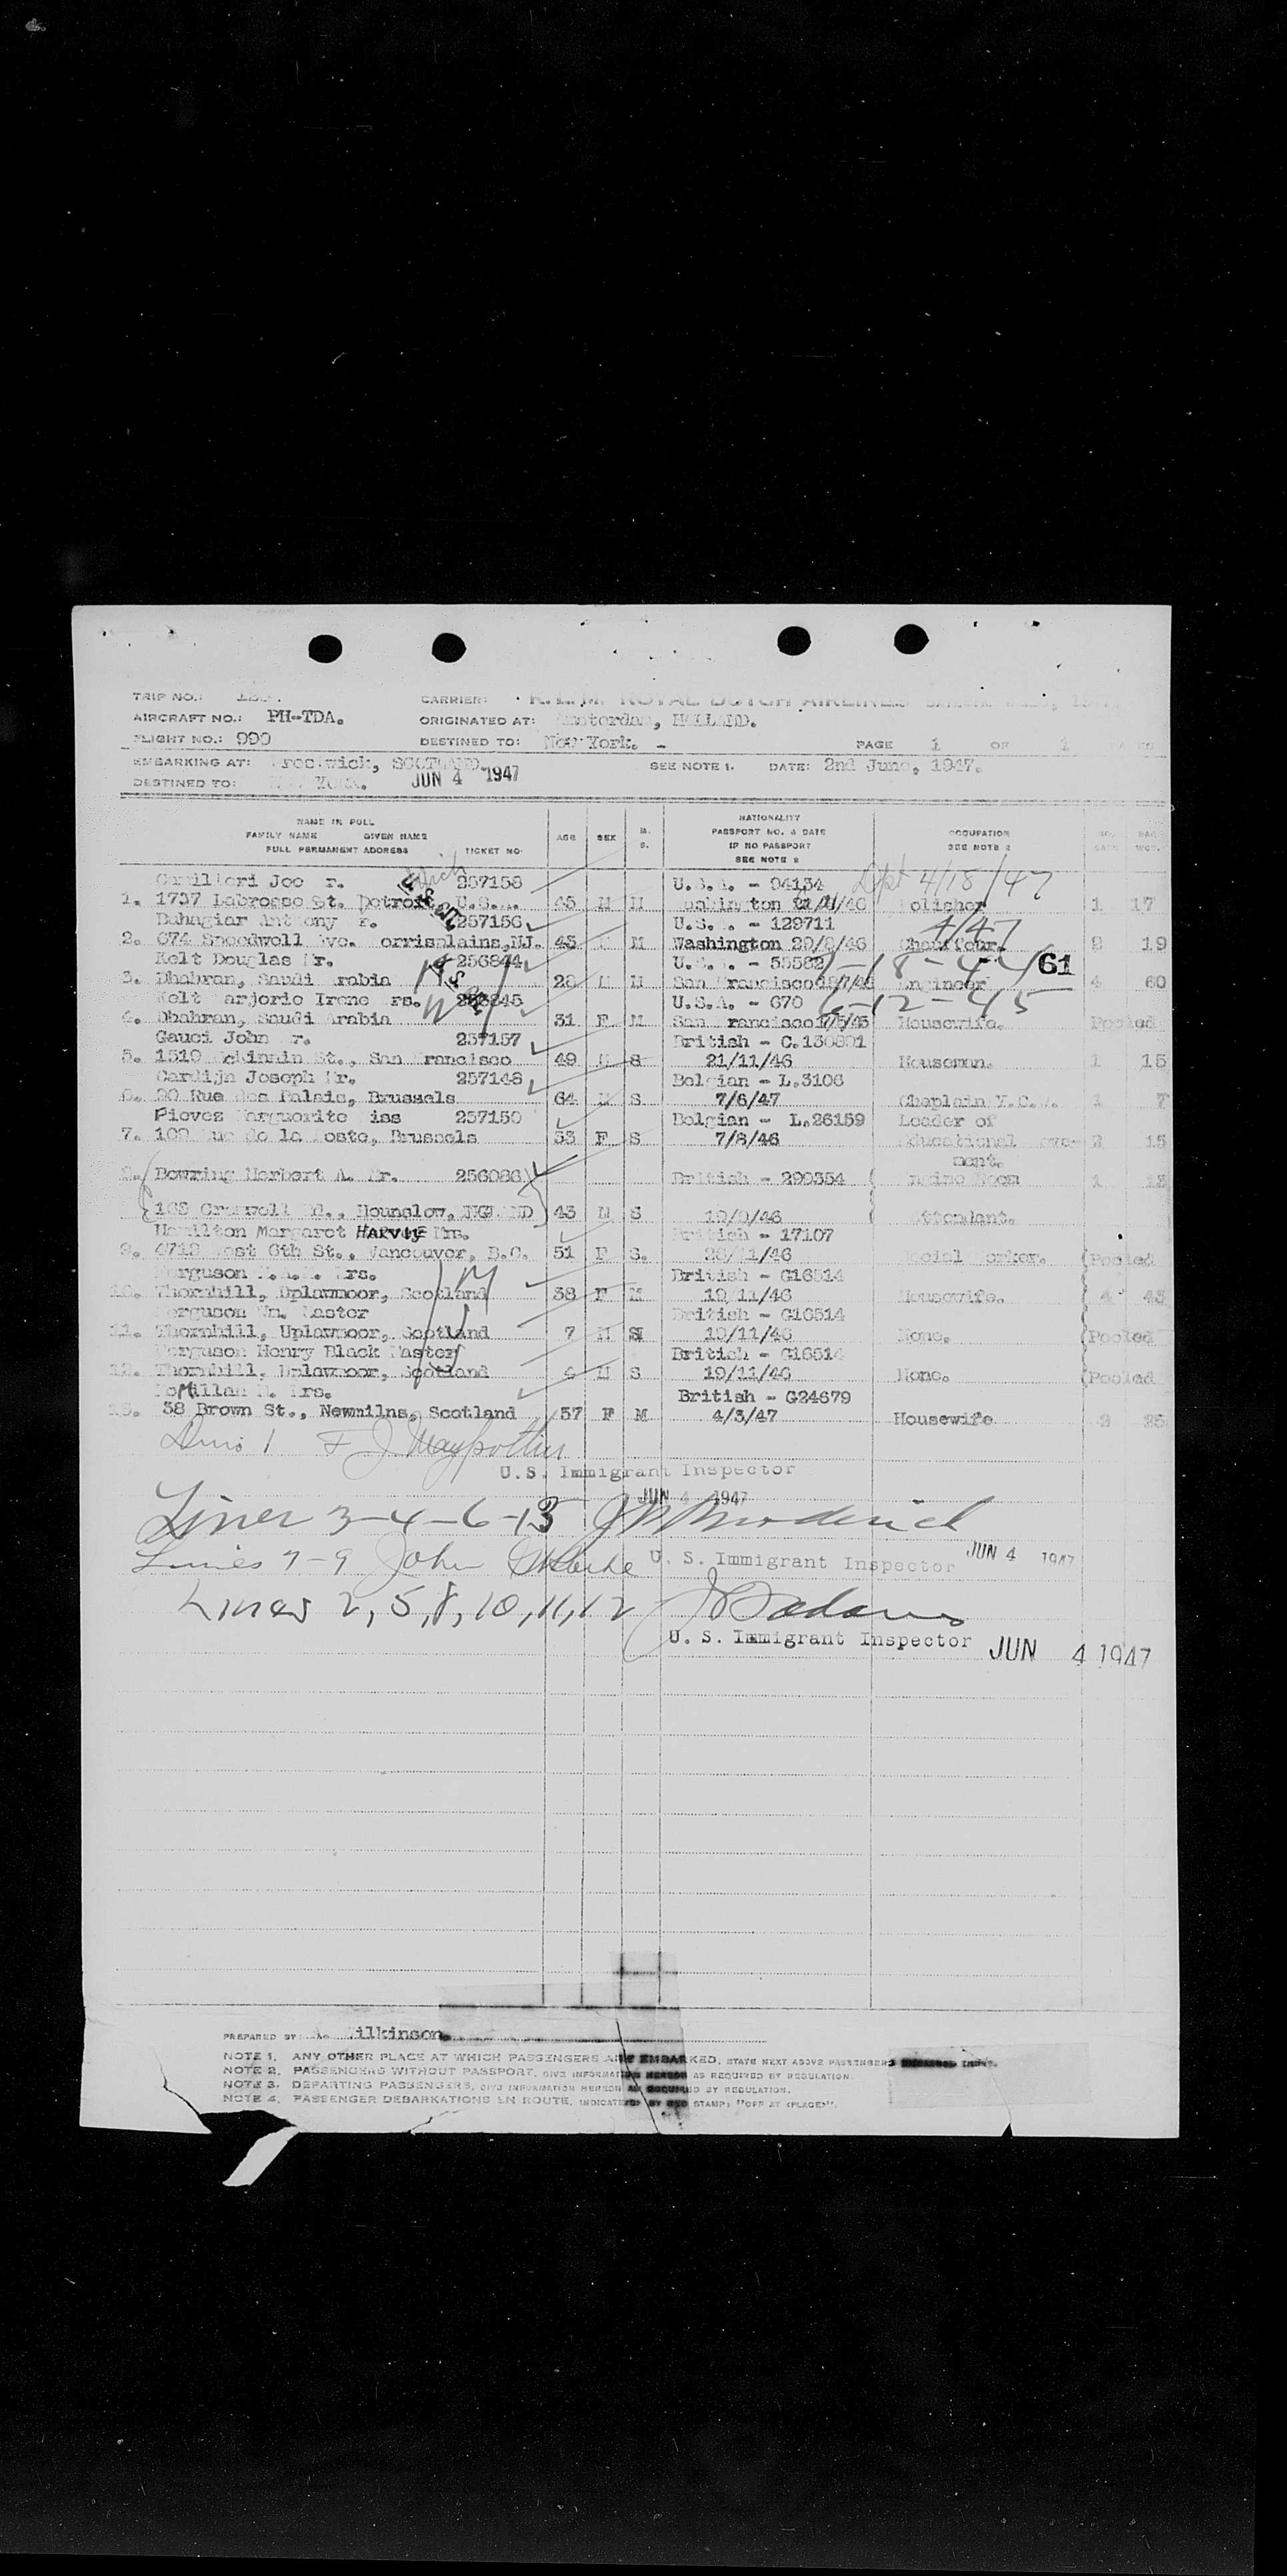 TRIP NO.:
CARRIER: K.L.M. ROYAL DUTCH AIRLINES
AIRCRAFT NO.: PH-TDA.
ORIGINATED AT: Amsterdam, HOLLAND.
FLIGHT NO.: 990
DESTINED TO: New York. -
PAGE 1 OF 1
EMBARKING AT: Prestwick, SCOTLAND.
SEE NOTE 1. DATE: 2nd June, 1947.
DESTINED TO: NEW YORK. JUN 4 1947
NAME IN FULL
FAMILY NAME GIVEN NAME
FULL PERMANENT ADDRESS TICKET NO.
AGE SEX M. S.
NATIONALITY
PASSPORT NO. & DATE
IF NO PASSPORT
SEE NOTE 2
OCCUPATION
SEE NOTE 2
Camilleri Joe Mr. 257158 U.S.A. - 94134 4/18/47
1. 1737 Labrosse St. Detroit, U.S.A. 45 M M Washington Polisher 1 17
Buhagiar Anthony Mr. 257156 U.S.A. - 129711 4/47
2. 674 Speedwell Ave. Morrisplains, NJ. 43 M M Washington 29/8/46 Chauffeur. 2 19
Kelt Douglas Mr. 256844 U.S.A. - 55582 61
3. Dhahran, Saudi Arabia 28 M M San Francisco Engineer 4 60
Kelt Marjorie Irene Mrs. 256845 U.S.A. - 670 6-12-45
4. Dhahran, Saudi Arabia 31 F M San Francisco Housewife. Pooled
Gauci John Mr. 257157 British - C.130801
5. 1510 McKinnin St., San Francisco 49 M S 21/11/46 Houseman. 1 15
Cardijn Joseph Mr. 257148 Belgian - L.3106
6. 90 Rue des Palais, Brussels 64 M S 7/6/47 Chaplain Y.C.W. 1 7
Pievez Marguerite Miss 257150 Belgian - L.26159 Leader of
7. 109 Rue de la Poste, Brussels 53 F S 7/8/46 Educational Move- 2 15
ment.
8. Bowring Herbert A. Mr. 256086 British - 299354 Engine Room 1
168 Cromwell Rd., Hounslow, ENGLAND 43 M S 19/9/46 Attendant.
Hamilton Margaret HARVIE Mrs. British - 17107
9. 4712 West 6th St., Vancouver, B.C. 51 F S. Social Worker. (Pooled
Ferguson Mrs. British - G16514
10. Thornhill, Uplawmoor, Scotland 38 F M 19/11/46 Housewife. 4 43
Ferguson Wm. Master British - G16514
11. Thornhill, Uplawmoor, Scotland 7 M S 19/11/46 None. (Pooled
Ferguson Henry Black Master British - G16514
12. Thornhill, Uplawmoor, Scotland M S 19/11/46 None. (Pooled
McMillan M. Mrs. British - G24679
13. 38 Brown St., Newmilns, Scotland 57 F M 4/3/47 Housewife 2 25
U.S. Immigrant Inspector
JUN 4 1947
Lines 3-4-6-13
Lines 7-9 John U. S. Immigrant Inspector JUN 4 1947
Lines 2, 5, 8, 10, 11, 12
U. S. Immigrant Inspector JUN 4 1947
PREPARED BY Wilkinson.
NOTE 1. ANY OTHER PLACE AT WHICH PASSENGERS ARE EMBARKED, STATE NEXT ABOVE PASSENGERS
NOTE 2. PASSENGERS WITHOUT PASSPORT, GIVE INFORMATION HEREON AS REQUIRED BY REGULATION.
NOTE 3. DEPARTING PASSENGERS, GIVE INFORMATION HEREON AS REQUIRED BY REGULATION.
NOTE 4. PASSENGER DEBARKATIONS EN ROUTE, INDICATED BY RED STAMP: "OFF AT (PLACE)".